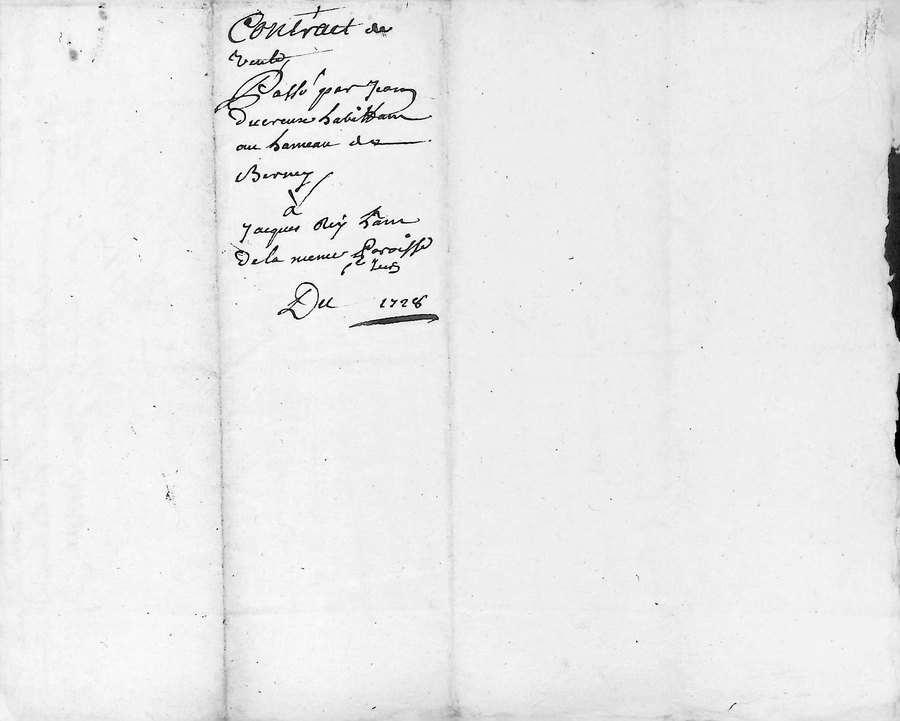 Contract de
vente
Passé par Jean
Ducreux habittant
au hameau de
Berney
à
Jacques Rey h'ant
de la meme Paroisse
Du 1728